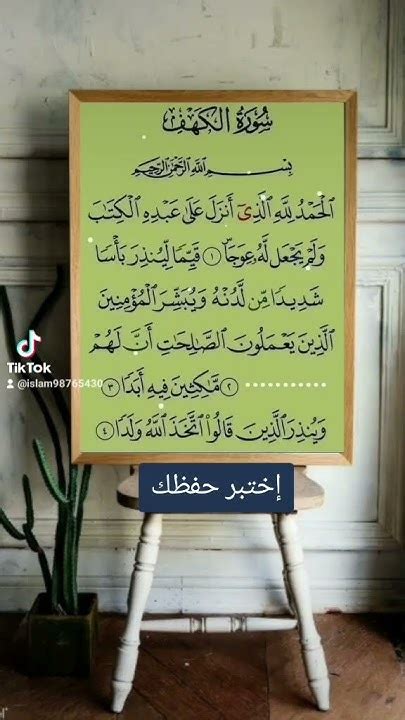 سُورَةُ الكَهْفِ
بِسْمِ اللَّهِ الرَّحْمَنِ الرَّحِيمِ
ٱلْحَمْدُ لِلَّهِ ٱلَّذِىٓ أَنزَلَ عَلَىٰ عَبْدِهِ ٱلْكِتَٰبَ
وَلَمْ يَجْعَل لَّهُۥ عِوَجَاۜ ١ قَيِّمًا لِّيُنذِرَ بَأْسًا
شَدِيدًا مِّن لَّدُنْهُ وَيُبَشِّرَ ٱلْمُؤْمِنِينَ
ٱلَّذِينَ يَعْمَلُونَ ٱلصَّٰلِحَٰتِ أَنَّ لَهُمْ
................ ٢ مَّٰكِثِينَ فِيهِ أَبَدًا ٣
وَيُنذِرَ ٱلَّذِينَ قَالُوا۟ ٱتَّخَذَ ٱللَّهُ وَلَدًا ٤
إختبر حفظك
TikTok
@islam98765430